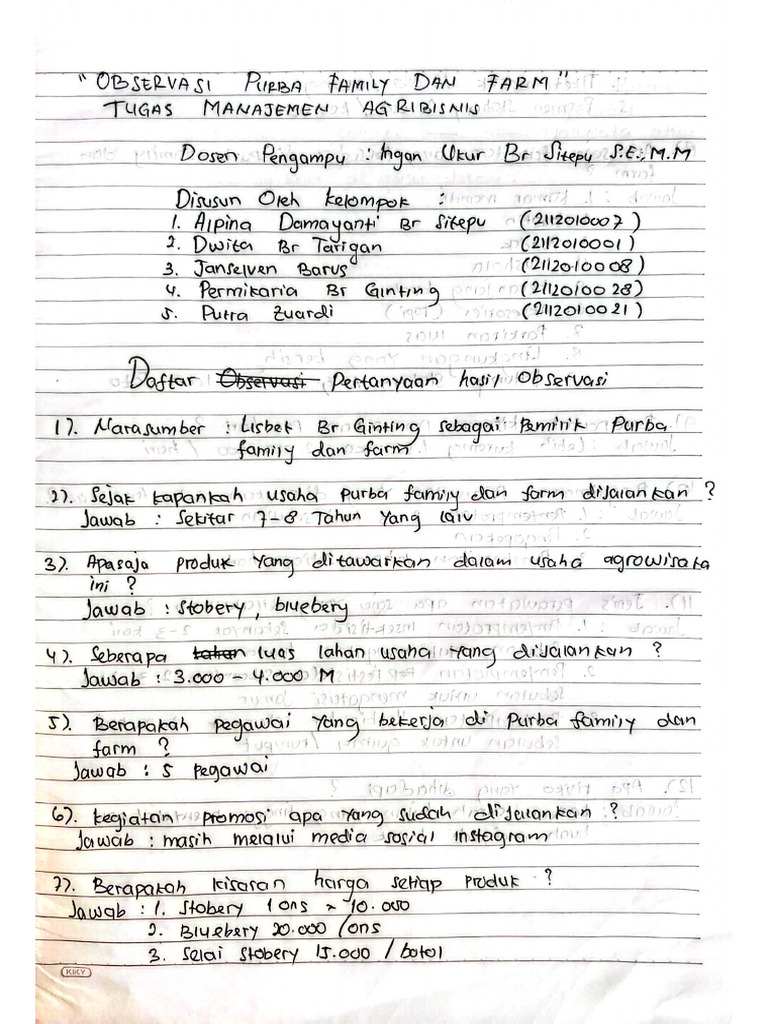 "OBSERVASI PURBA FAMILY DAN FARM"
TUGAS MANAJEMEN AGRIBISNIS
Dosen Pengampu : Ingan Ukur Br Sitepu S.E., M.M
Disusun Oleh Kelompok :
1. Alpina Damayanti Br Sitepu (2112010007)
2. Dwita Br Tarigan (2112010001)
3. Janselven Barus (2112010008)
4. Permikaria Br Ginting (2112010028)
5. Putra Zuardi (2112010021)
Daftar Observasi Pertanyaan hasil Observasi
1). Narasumber : Lisbet Br Ginting sebagai Pemilik Purba
family dan farm
2). Sejak kapankah usaha purba family dan farm dijalankan ?
Jawab : Sekitar 7-8 Tahun yang lalu
3). Apasaja produk yang ditawarkan dalam usaha agrowisata
ini ?
Jawab : Stobery, bluebery
4). Seberapa lahan luas lahan usaha yang dijalankan ?
Jawab : 3.000 - 4.000 M
5). Berapakah pegawai yang bekerja di Purba family dan
farm ?
Jawab : 5 pegawai
6). Kegiatan promosi apa yang sudah dijalankan ?
Jawab : masih melalui media sosial instagram
7). Berapakah kisaran harga setiap produk ?
Jawab : 1. Stobery 1 ons = 10.000
2. Bluebery 20.000 /ons
3. Selai stobery 15.000 / botol
KIKY